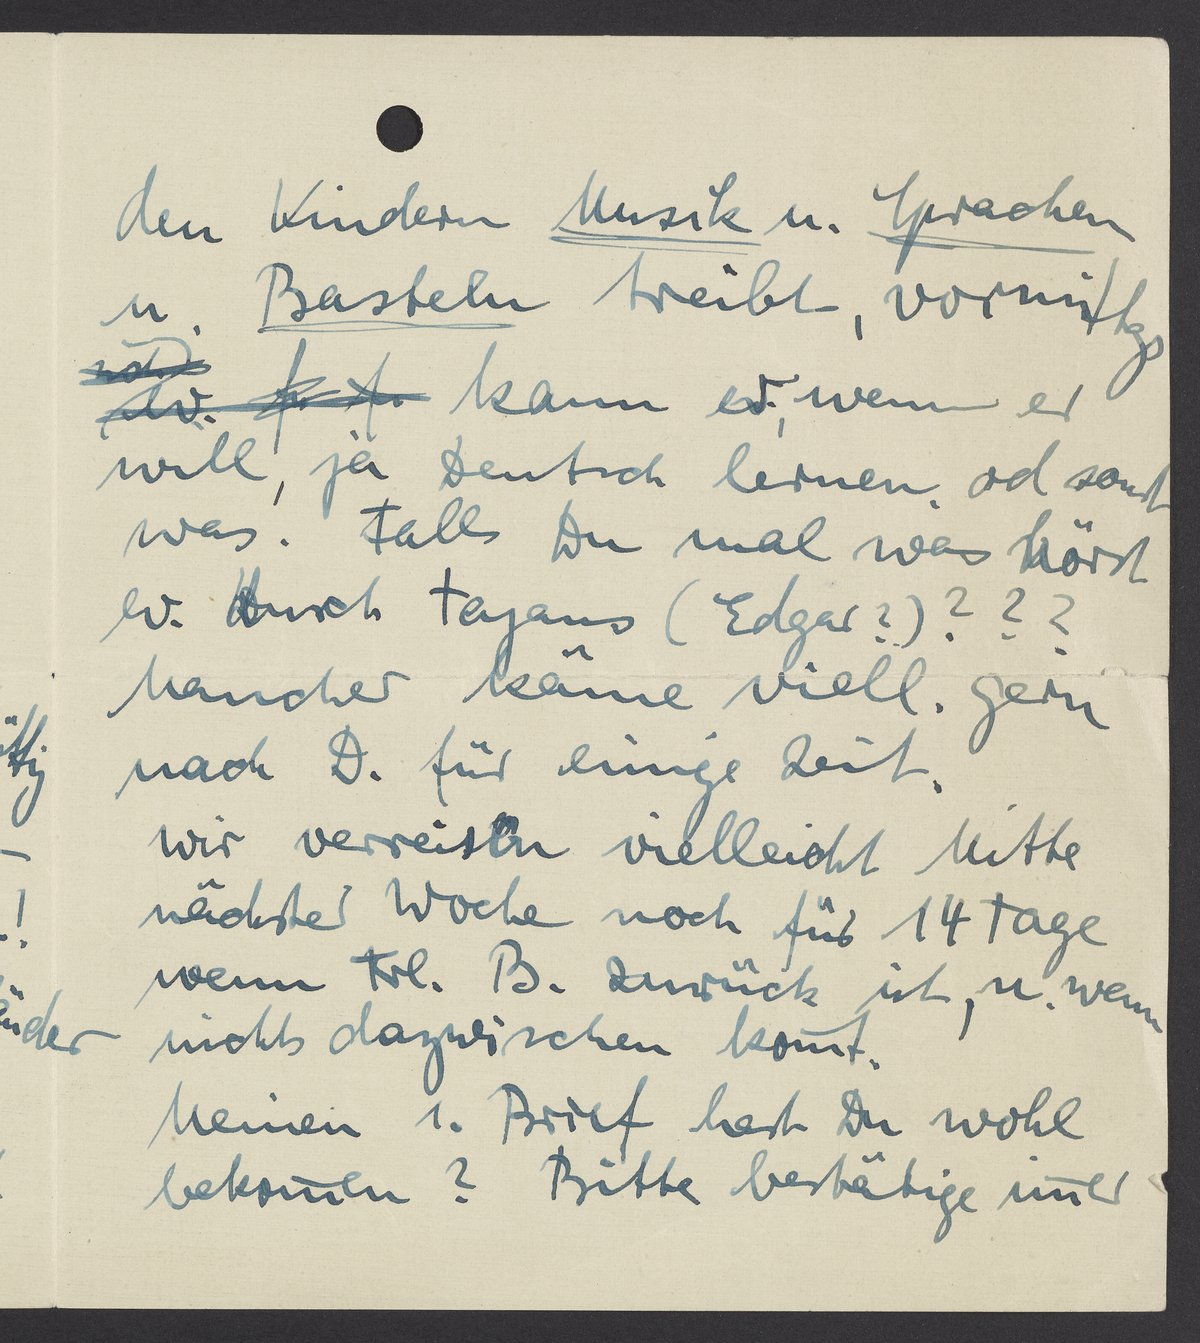 den Kindern Musik u. Sprachen
u. Basteln treibt, vormittgs
kann ev., wenn er
will, ja Deutsch lernen, od sonst
was. Falls Du mal was hörst
ev. durch Tajans (Edgar?)???
Mancher käme viell. gern
nach D. für einige Zeit.
Wir verreisen vielleicht Mitte
nächster Woche noch für 14 Tage
wenn Frl. B. zurück ist, u. wenn
nichts dazwischen kom̅t.
Meinen 1. Brief hast Du wohl
bekom̅en? Bitte bestätige im̅er